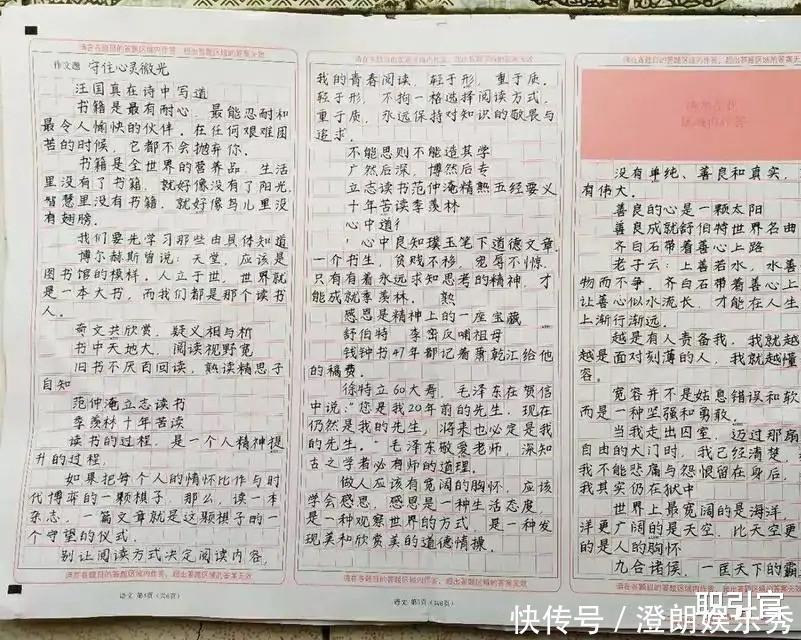 请在各题目的答题区域内作答，超出答题区域的答案无效
作文题 守住心灵微光
汪国真在诗中写道
书籍是最有耐心，最能忍耐和
最令人愉快的伙伴。在任何艰难困
苦的时候，它都不会抛弃你。
书籍是全世界的营养品。生活
里没有了书籍，就好像没有了阳光，
智慧里没有书籍，就好像鸟儿里没
有翅膀。
我们要先学习那些由具体知道
博尔赫斯曾说：天堂，应该是
图书馆的模样。人立于世，世界就
是一本大书，而我们都是那个读书
人。
奇文共欣赏，疑义相与析
书中天地大，阅读视野宽
旧书不厌百回读，熟读精思子
自知
范仲淹立志读书
季羡林十年苦读
读书的过程，是一个人精神提
升的过程，
如果把每个人的情怀比作与时
代博弈的一颗棋子，那么，读一本
杂志，一篇文章就是这颗棋子的一
个守望的仪式。
别让阅读方式决定阅读内容，
请在各题目的答题区域内作答，超出答题区域的答案无效
语文 第4页（共6页）
请在各题目的答题区域内作答，超出答题区域的答案无效
我的青春阅读，轻于形，重于质。
轻于形，不拘一格选择阅读方式，
重于质，永远保持对知识的敬畏与
追求。
不能思则不能造其学
广然后深，博然后专
立志读书范仲淹精熟五经要义
十年苦读季羡林
心中道
心中良知璞玉笔下道德文章
一个书生，贫贱不移，宠辱不惊，
只有有着永远求知思考的精神，才
能成就季羡林。
感恩是精神上的一座宝藏
舒伯特 李密反哺祖母
钱钟书47年都记着萧乾汇给他
的稿费。
徐特立60大寿，毛泽东在贺信
中说："您是我20年前的先生，现在
仍然是我的先生，将来也必定是我
的先生。"毛泽东敬爱老师，深知
古之学者必有师的道理。
做人应该有宽阔的胸怀，应该
学会感恩，感恩是一种生活态度，
是一种观察世界的方式，是一种发
现美和欣赏美的道德情操。
请在各题目的答题区域内作答，超出答题区域的答案无效
语文 第5页（共6页）
请在各题目的答题区域内作答，超出答题区域的答案
没有单纯、善良和真实，
有伟大。
善良的心是一颗太阳
善良成就舒伯特世界名曲
齐白石带着善心上路
老子云：上善若水，水善
物而不争。齐白石带着善心上
让善心似水流长，才能在人生
上渐行渐远。
越是有人责备我，我就越
越是面对刻薄的人，我就越懂
容。
宽容并不是姑息错误和软
而是一种坚强和勇敢。
当我走出囚室，迈过那扇
自由的大门时，我已经清楚，
我不能悲痛与怨恨留在身后，
我其实仍在狱中
世界上最宽阔的是海洋，
洋更广阔的是天空，比天空更
的是人的胸怀
九合诸侯，一匡天下的霸
请在各题目的答题区域内作答，超出答题区域的答案
职引官
快传号／澄朗娱乐秀